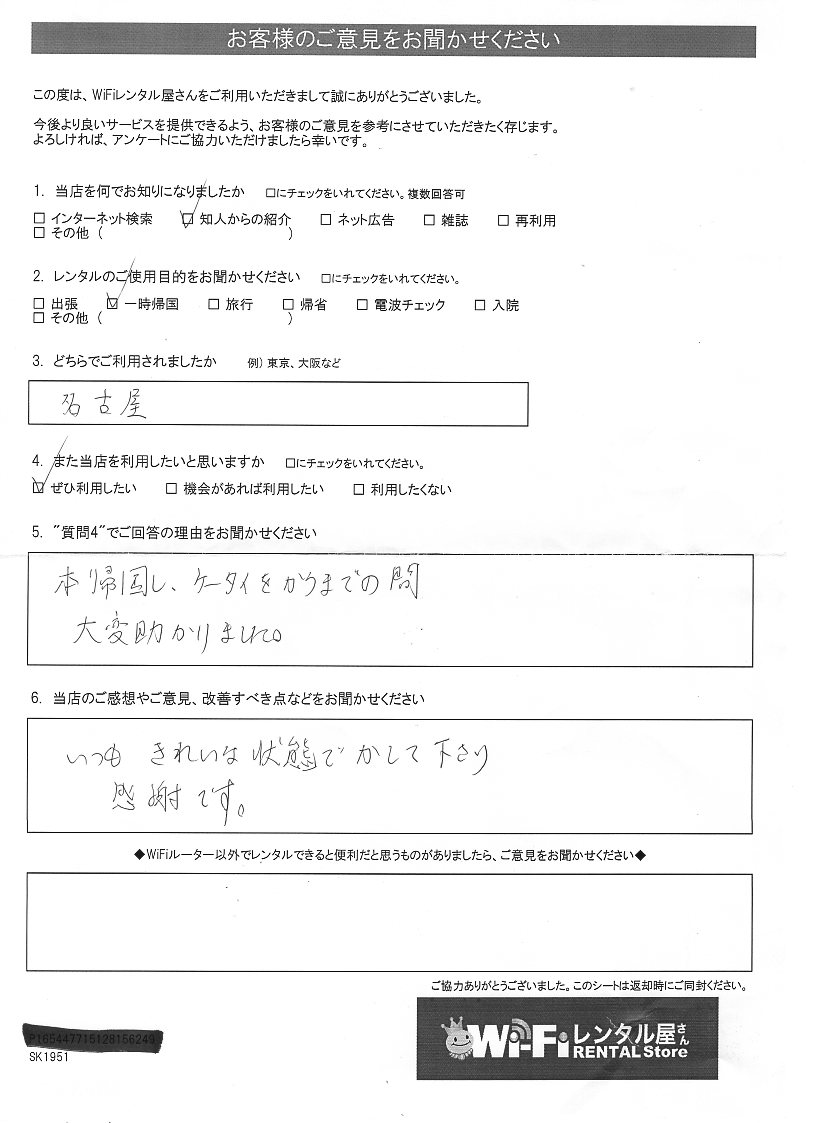 お客様のご意見をお聞かせください
この度は、WiFiレンタル屋さんをご利用いただきまして誠にありがとうございました。
今後より良いサービスを提供できるよう、お客様のご意見を参考にさせていただきたく存じます。
よろしければ、アンケートにご協力いただけましたら幸いです。
1. 当店を何でお知りになりましたか □にチェックをいれてください。複数回答可
□ インターネット検索 ☑ 知人からの紹介 □ ネット広告 □ 雑誌 □ 再利用
□ その他 ( )
2. レンタルのご使用目的をお聞かせください □にチェックをいれてください。
□ 出張 ☑ 一時帰国 □ 旅行 □ 帰省 □ 電波チェック □ 入院
□ その他 ( )
3. どちらでご利用されましたか 例) 東京、大阪など
名古屋
4. また当店を利用したいと思いますか □にチェックをいれてください。
☑ ぜひ利用したい □ 機会があれば利用したい □ 利用したくない
5. "質問4"でご回答の理由をお聞かせください
本帰国し、ケータイをかうまでの間
大変助かりました。
6. 当店のご感想やご意見、改善すべき点などをお聞かせください
いつも きれいな状態でかして下さり
感謝です。
◆WiFiルーター以外でレンタルできると便利だと思うものがありましたら、ご意見をお聞かせください◆
ご協力ありがとうございました。このシートは返却時にご同封ください。
Wi-Fiレンタル屋さん
RENTAL Store
SK1951